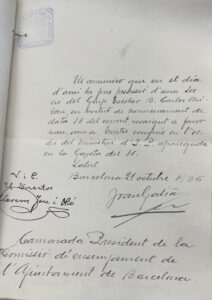 Us comunico que en el dia
d'ahir he pres possessió d'una Sec-
ció del Grup Escolar B. Carles Ari-
bau en virtut de nomenament de
data 18 del corrent, atorgat a favor
meu com a Mestre comprès en l'or-
dre del Ministeri d'I. P. apareguda
en la Gaceta del 10.
Salut
Barcelona 21 octubre 1936
V. i P.
El Director
Joan Gatià
Camarada President de la
Comissió d'ensenyament de
l'Ajuntament de Barcelona